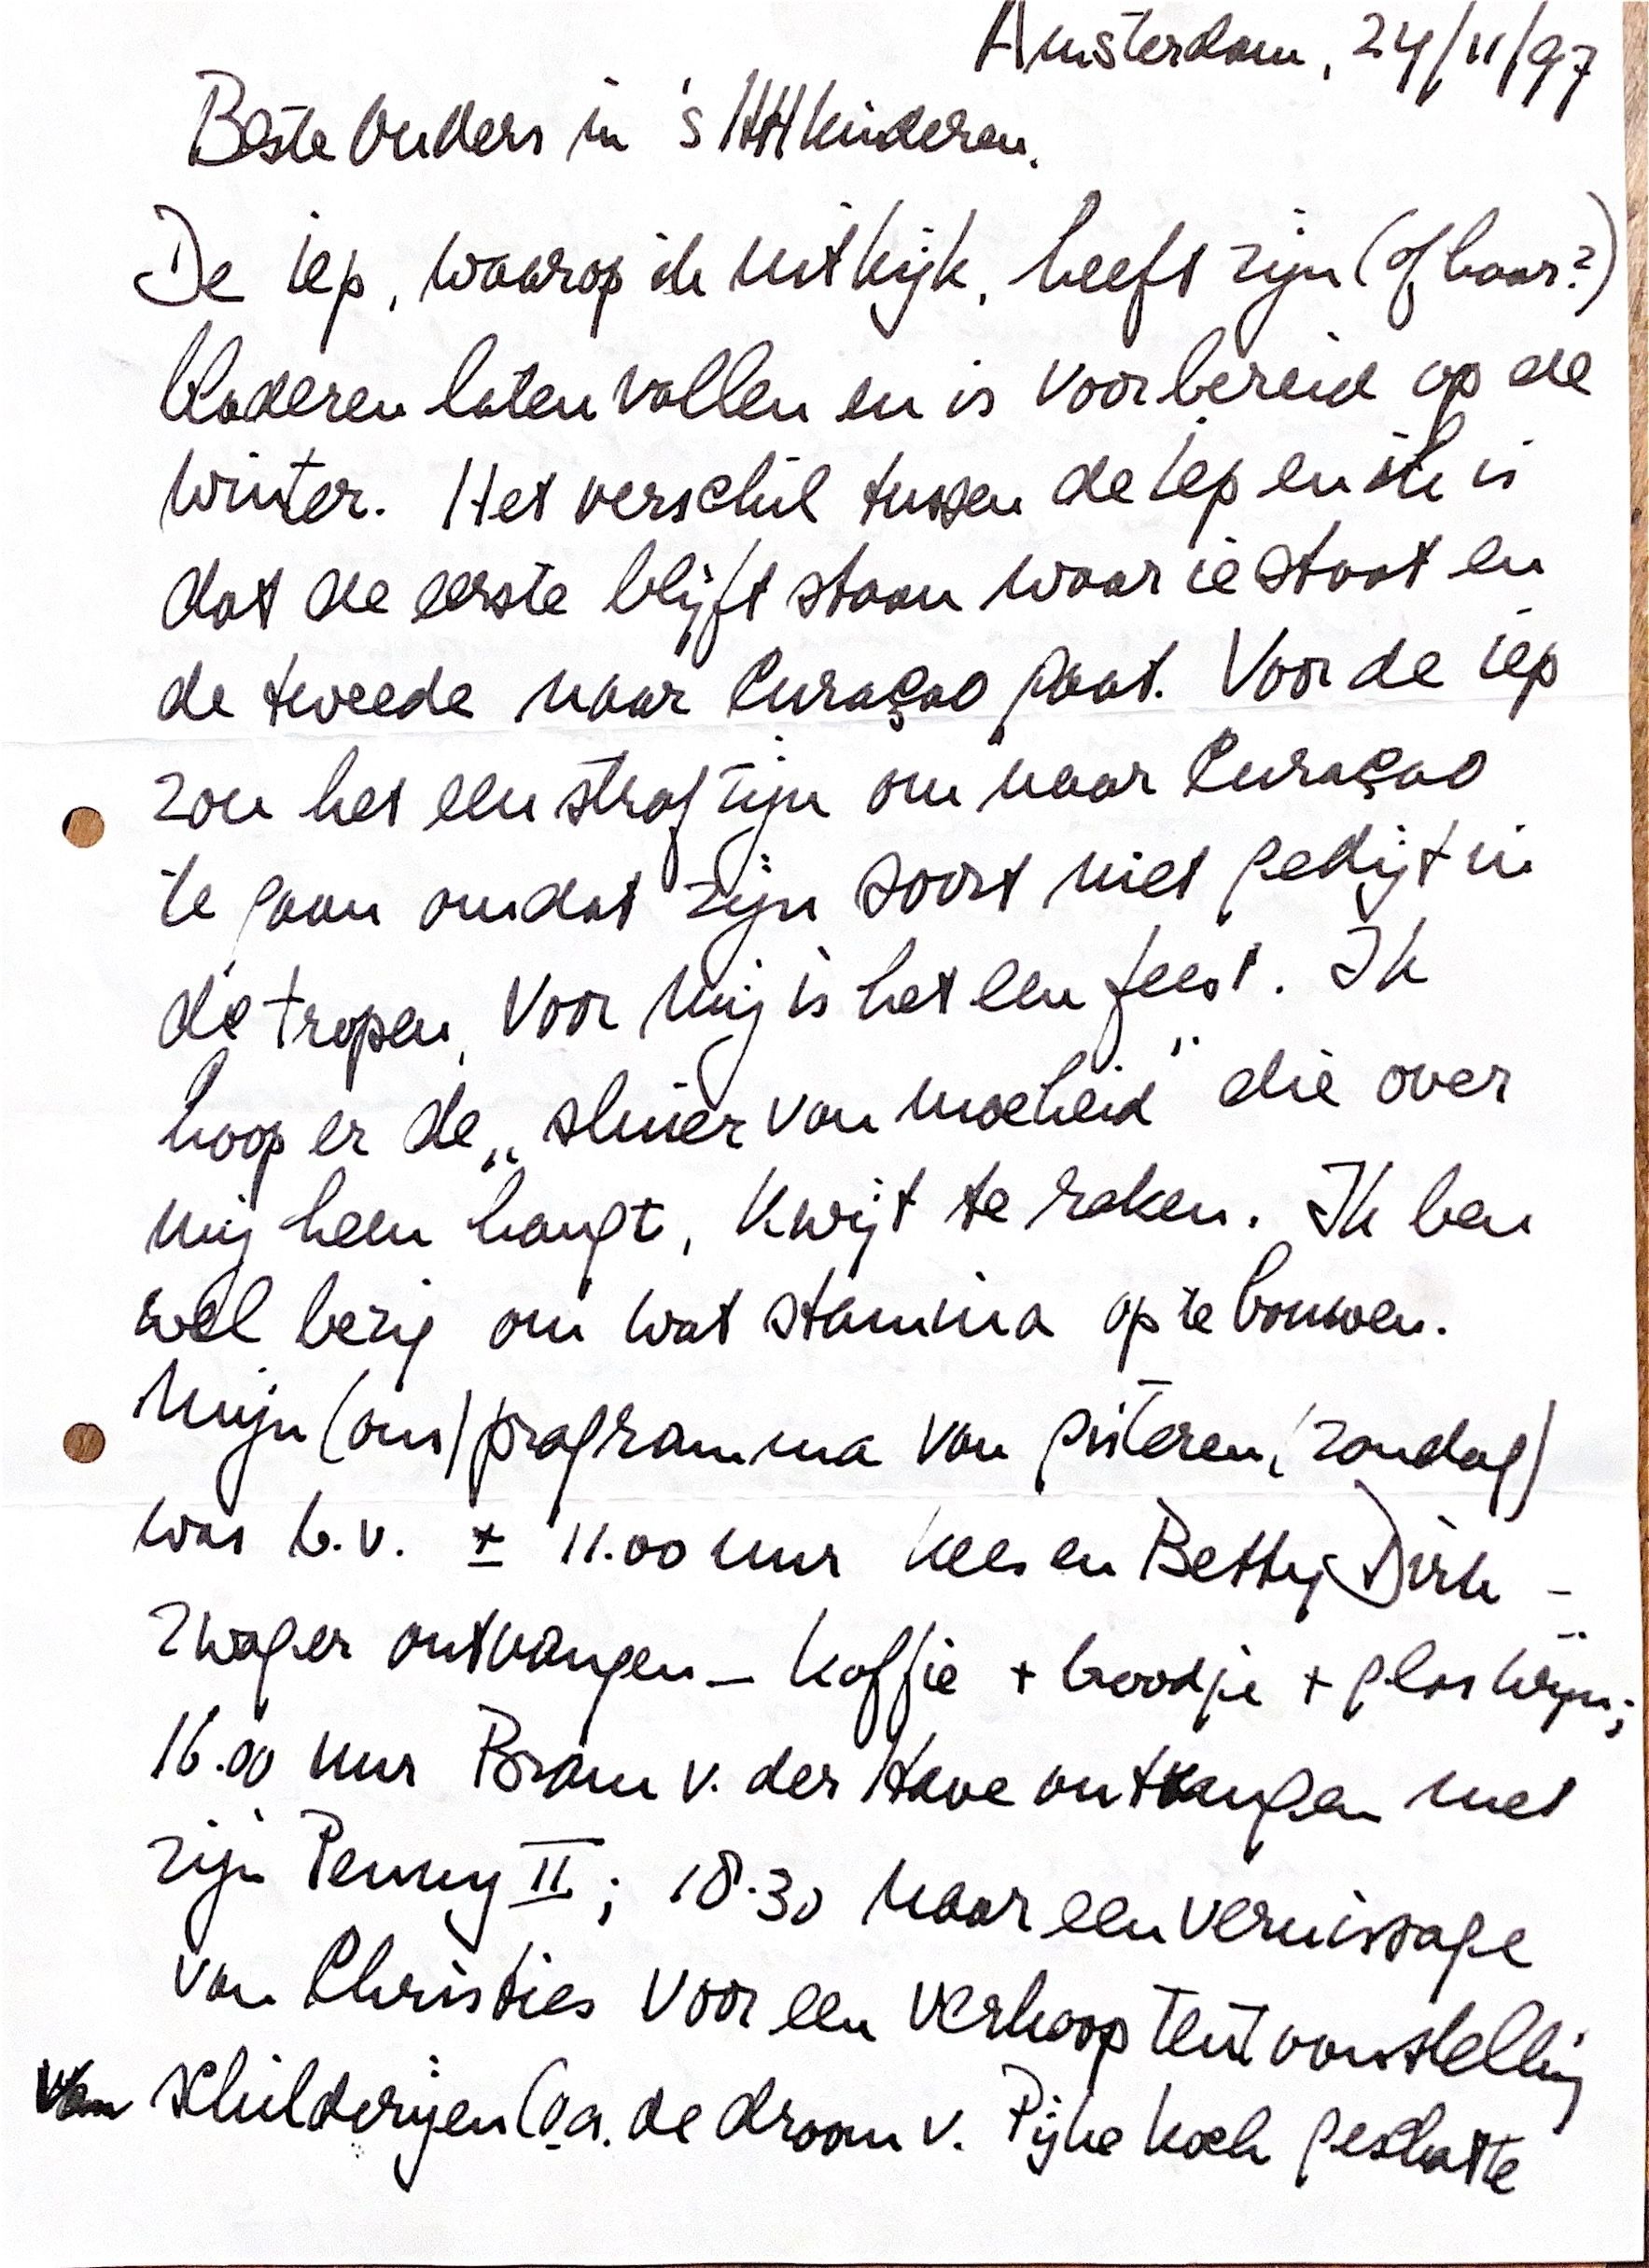 Amsterdam, 24/11/97
Beste Ouders in 's HHHkinderen.
De iep, waarop ik uitkijk, heeft zijn (of haar?)
bladeren laten vallen en is voorbereid op de
winter. Het verschil tussen de iep en ik is
dat de eerste blijft staan waar ie staat en
de tweede naar Curaçao gaat. Voor de iep
zou het een straf zijn om naar Curaçao
te gaan omdat zijn soort niet gedijt in
de tropen, Voor mij is het een feest. Ik
hoop er de „sluier van moeheid" die over
mij heen hangt, kwijt te raken. Ik ben
wel bezig om wat stamina op te bouwen.
Mijn (ons) programma van gisteren (zondag)
was b.v. ± 11.00 uur Kees en Betty Dirk-
zwager ontvangen - koffie + broodje + glas wijn;
16.00 uur Bram v. der Have ontvangen met
zijn Penny II; 18.30 naar een vernissage
van Christies voor een verkoop tentoonstelling
van schilderijen (o.a. de droom v. Pijke Koch geschatte